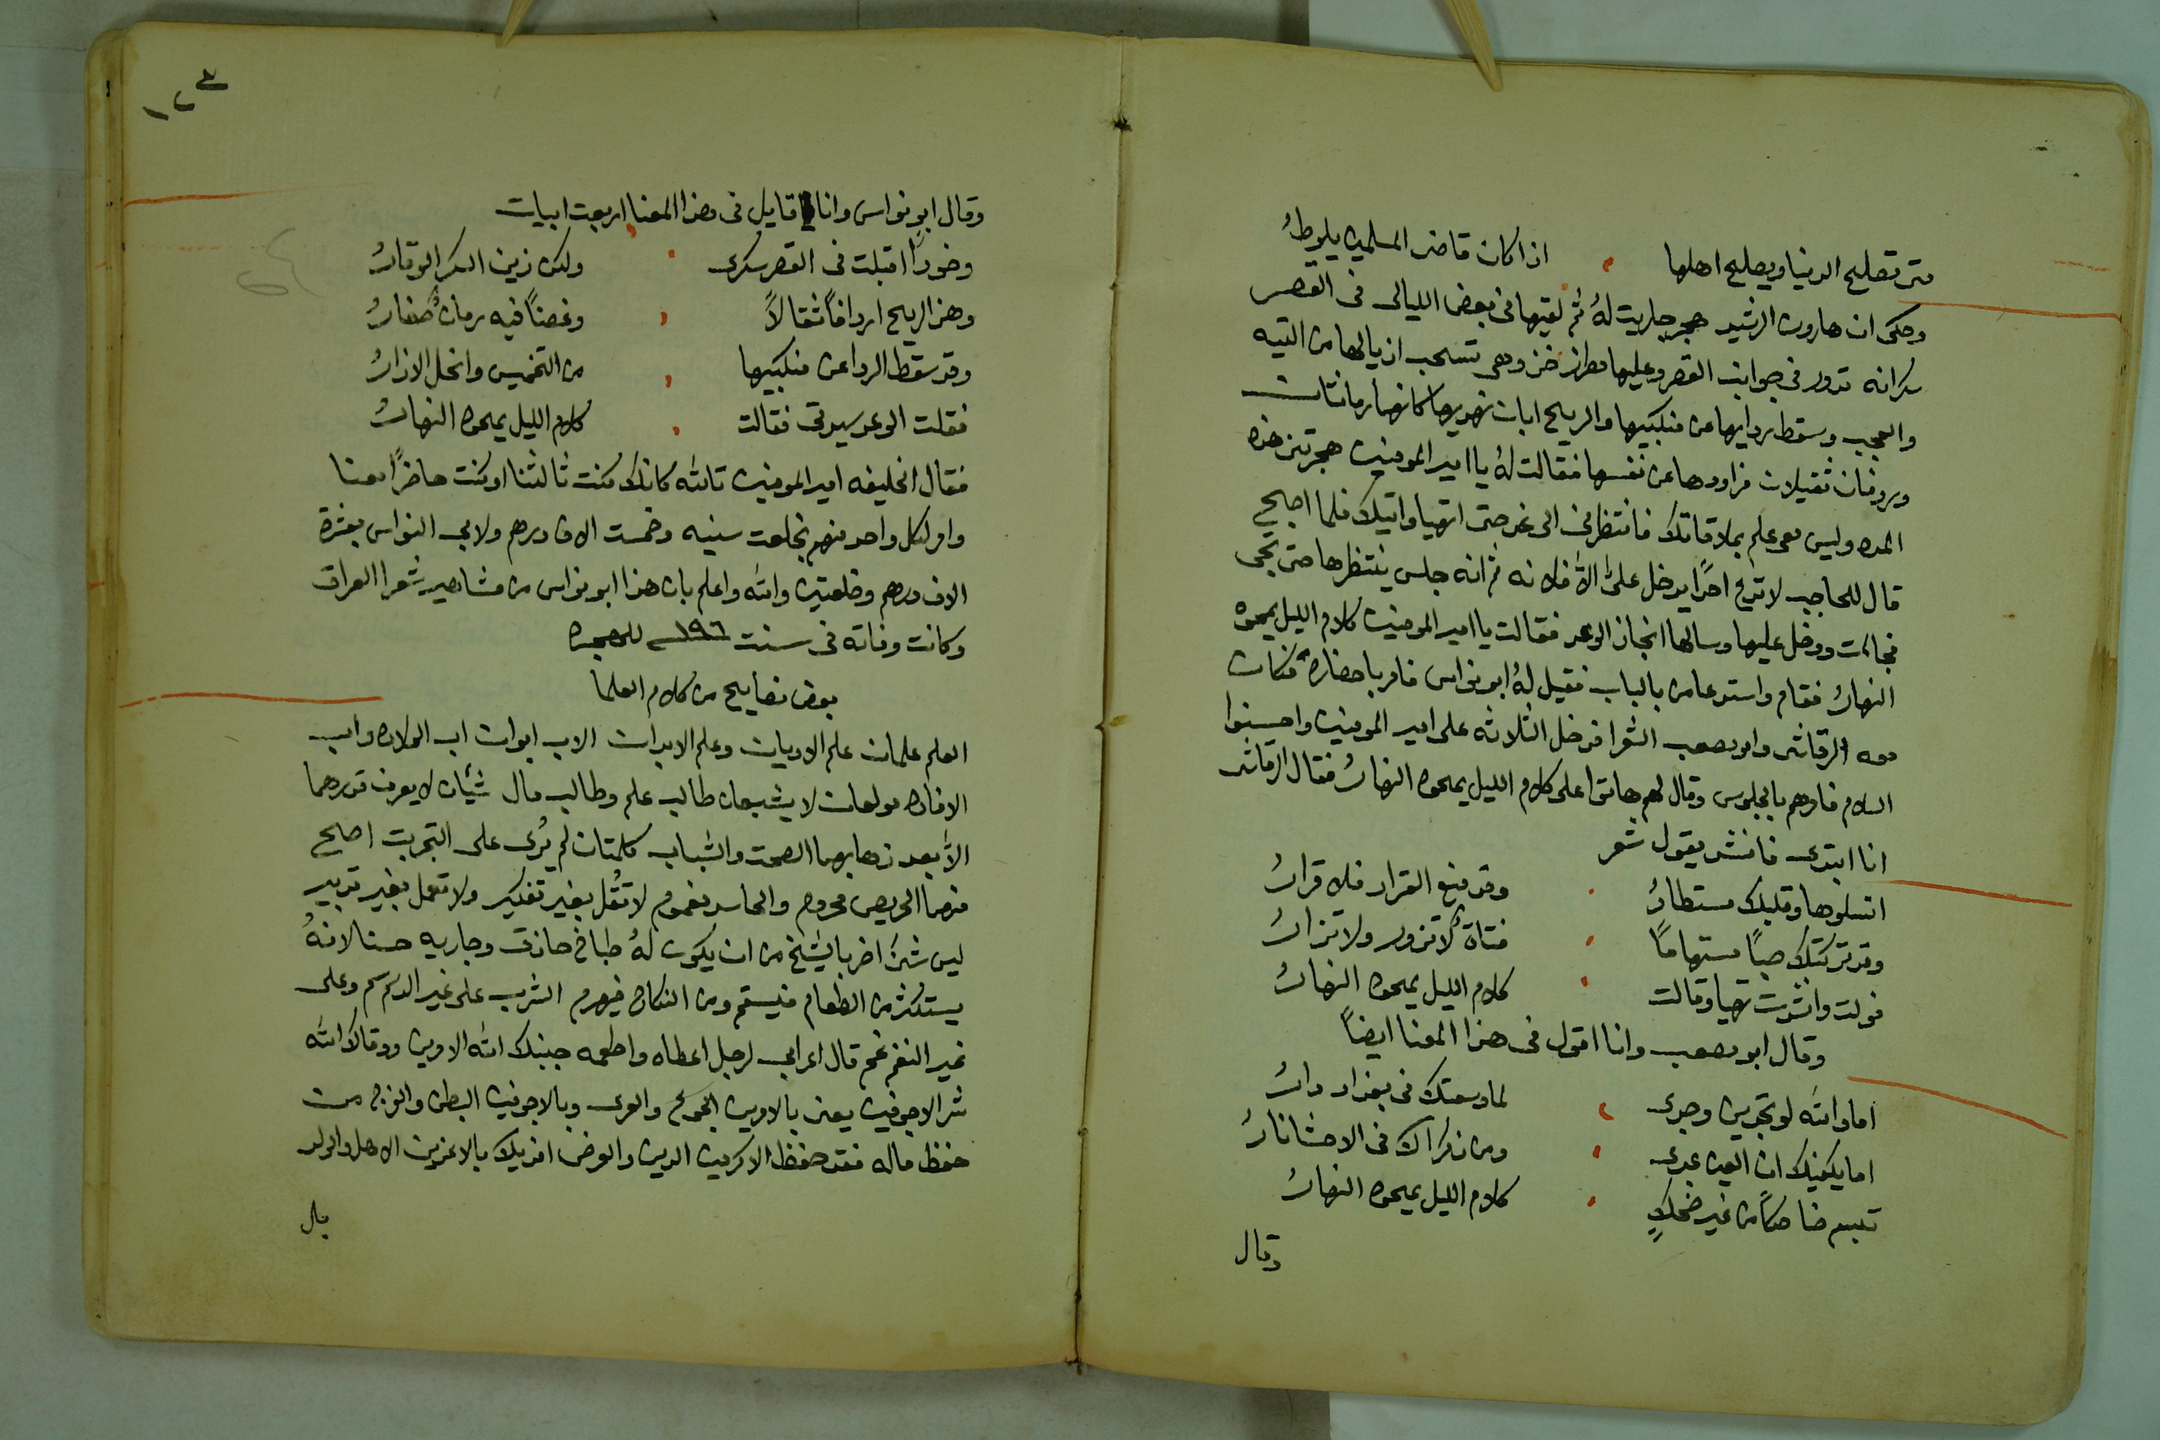 متى تصلح الدنيا ويصلح اهلها اذا كان قاضى المسلمين يلوطُ
وحكى ان هارون الرشيد هجر جاريت لهُ ثم لقيها فى بعض الليالى فى القصر
سكرانه تدور فى جوانب القصر وعليها مطراز خز وهى تسحب اذيالها من التيه
والعجب وسقط ردايها عن منكبيها والريح ابان نهديها كانهما رمانتان
وردفان ثقيلان فراودها عن نفسها فقالت لهُ يا امير المومنين هجرتنى هذه
المده وليس معى علم بملاقاتك فانتظرنى الى غد حتى اتهيا واتيك فلما اصبح
قال للحاجب لا تدع احدًا يدخل علىَّ الاَّ فلانه ثم انه جلس ينتظرها حتى تجى
فجاات ودخل عليها وسالها انجاز الوعد فقالت يا امير المومنين كلام الليل يمحوه
النهارُ فقام واستدعا من بالباب فقيل لهُ ابو نواس فامر باحضاره فكان
معه الرقاشى وابو مصعب الشعرا فدخل الثلاثه على امير المومنين واحسنوا
السلام فامرهم بالجلوس وقال لهم هاتوا على كلام الليل يمحوه النهارُ فقال الرقاشى
انا ابتدى فانشد يقول شعر
اتسلوها وقلبك مستطارُ وقد منع القرار فلا قرارُ
وقد تركتك صبًا مستهامًا فتاة لا تزور ولا تزارُ
فولت وانثنت تيها وقالت كلام الليل يمحوه النهارُ
وقال ابو مصعب وانا اقول فى هذا المعنا ايضاً
اما والله لو تجدين وجدى لما وسعتك فى بغداد دارُ
اما يكفيك ان العين عبرى ومن ذكراك فى الاحشا نارُ
تبسم ضاحكاً من غير ضحكٍ كلام الليل يمحوه النهارُ
وقال
١٢٣
وقال ابو نواس وانا قايل فى هذا المعنا اربعت ابيات
وخوداً اقبلت فى القصر سكرى ولكن زين السكر الوقارُ
وهز الريح اردافاً ثقالاً وغصناً فيه رمان صغارُ
وقد سقط الردا عن منكبيها من التخميس وانحل الازارُ
فقلت الوعد سيدتى فقالت كلام الليل يمحوه النهارُ
فقال الخليفه امير المومنين تالله كانك كنت ثالثنا او كنت حاضراً معنا
وامر لكل واحد منهم بخلعت سنيه وخمست الاف درهم ولابى النواس بعشرة
الاف درهم وخلعتين والله واعلم بان هذا ابو نواس من مشاهير شعرا العراق
وكانت وفاته فى سنت ١٩٦ للهجره
بعض نصايح من كلام العلما
العلم علمان علم الاديان وعلم الابدان الاب ابوان اب الولاده واب
الافاده مولعان لا يشبعان طالب علم وطالب مال شيان لا يعرف قدرهما
الاَّ بعد ذهابهما الصحت والشباب كلمتان لم يُرى على التجربت اصلح
منهما الحريص محروم والحاسد مغموم لا تقُل بغير تفكير ولا تعمل بغير تدبير
ليس شئ اضر بالشيخ من ان يكون لهُ طباخ حاذق وجاريه حسنا لانهُ
يستكثر من الطعام فيسقم ومن النكاح فيهرم الشرب على غير الدسم سم وعلى
غير النغم غم قال اعرابى لرجل اعطاه واطعمه جنبك الله الامرين ووقاك الله
شر الاجوفين يعنى بالامرين الجوع والعرى وبالاجوفين البطن والفرج من
حفظ ماله فقد حفظ الاكرمين الدين والعرض افديك بالاعزين الاهل والولد